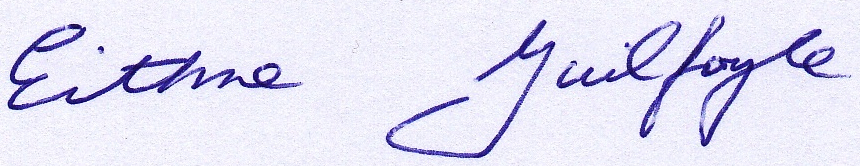 Eithne Guilfoyle